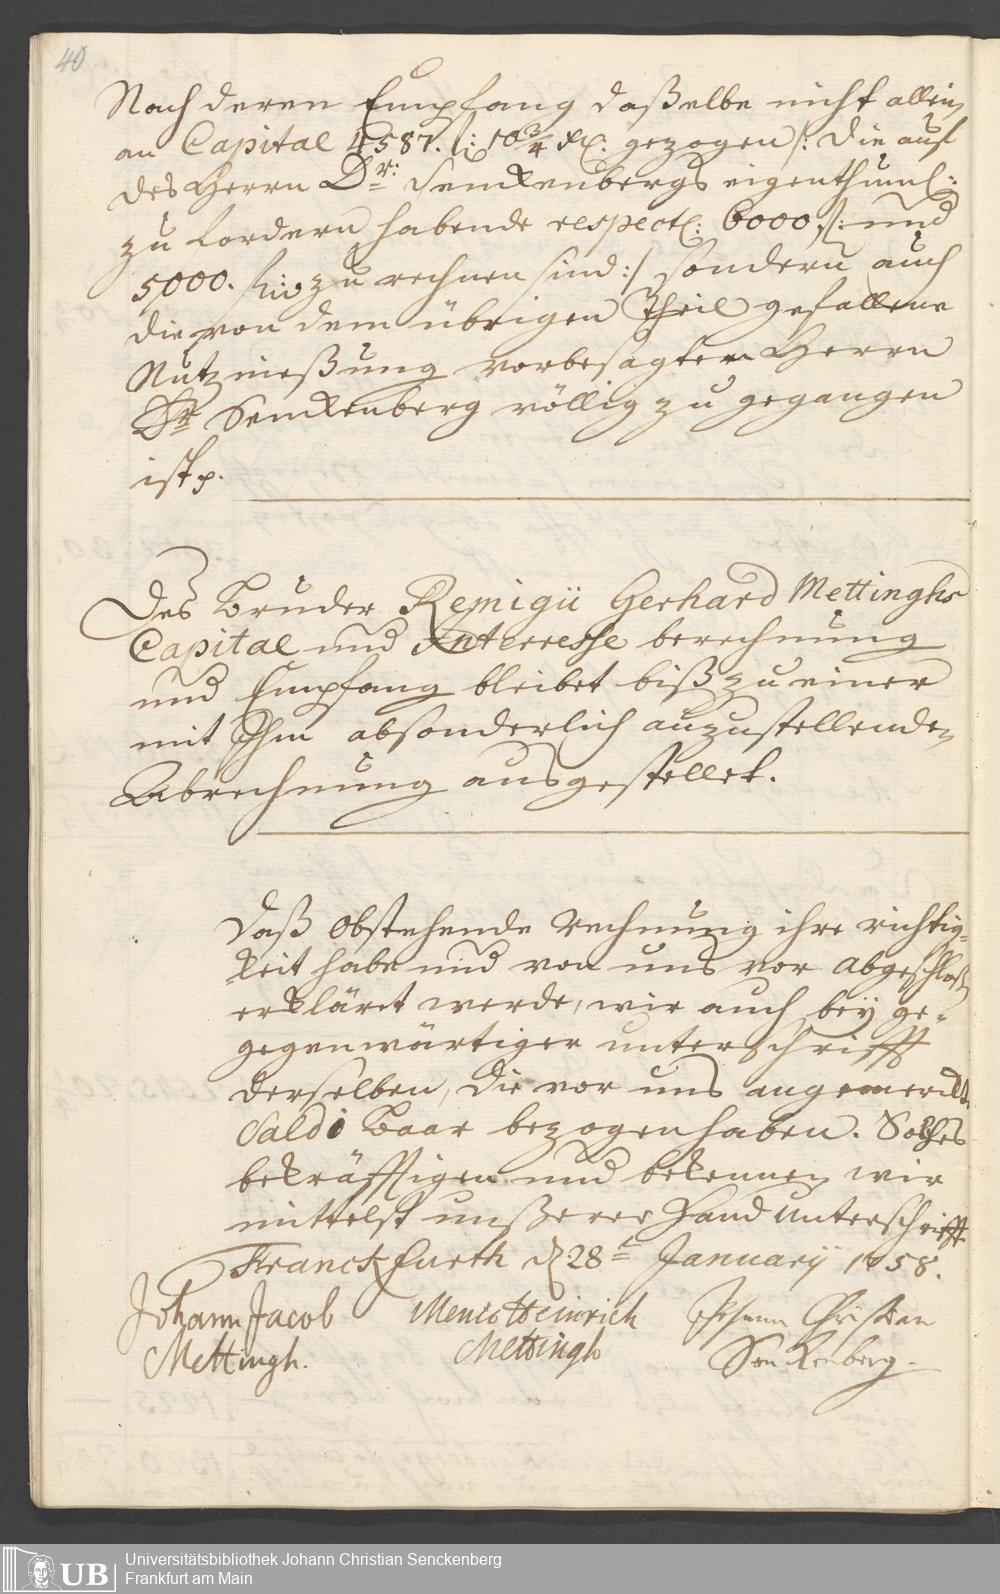 40
Nach deren Empfang daßelbe nicht allein
an Capital 4587. f: 50¾ xr. gezogen /: die auf
des Herrn Dr: Senckenbergs eigenthüml:
zu fordern habende respectl: 6000 f: und
5000. zu rechnen sind :/ sondern auch
die von dem übrigen Theil gefallene
Nutznießung vorbesagtem Herrn
Dr Senckenberg völlig zu gegangen
ist p.
Des Bruder Remigii Gerhard Mettinghs
Capital und Interresse berechnung
und Empfang bleibet biß zu einer
mit Ihm absonderlich anzustellenden
Abrechnung ausgestellet.
Daß obstehende Rechnung ihre richtig-
keit habe und von uns vor abgeschloß
erkläret werde, wir auch beÿ ge-
gegenwärtiger unterschrifft
derselben, die vor uns angemerckt
Saldi baar bezogen haben. Solches
bekräfftigen und bekennen wir
mittelst unßerer Hand unterschrifft
Franckfurth d 28t Januarÿ 1758.
Johann Jacob Meno Heinrich Johann Christian
Mettingh. Mettingh Senckenberg
UB Universitätsbibliothek Johann Christian Senckenberg
Frankfurt am Main